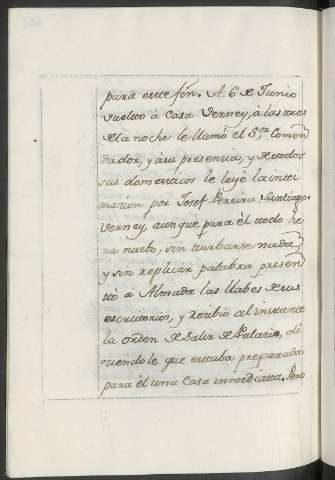 para este fin. A. 6 de Junio
vuelto à Casa Verney, à las tres
de la noche le llamò el S.or Comen
dador, y à su presencia, y de todos
sus domesticos le leyò la inti
macion por Josef Pereira Santiago.
Verney aunque para èl todo he
ra nuebo, sin turbarse nada,
y sin replicar palabra presen
tò à Almada las llabes de sus
escritorios, y recibiò al instante
la orden de Salir de Palacio, di
ciendole que estaba preparada
para èl una Casa inmediatta. Pero